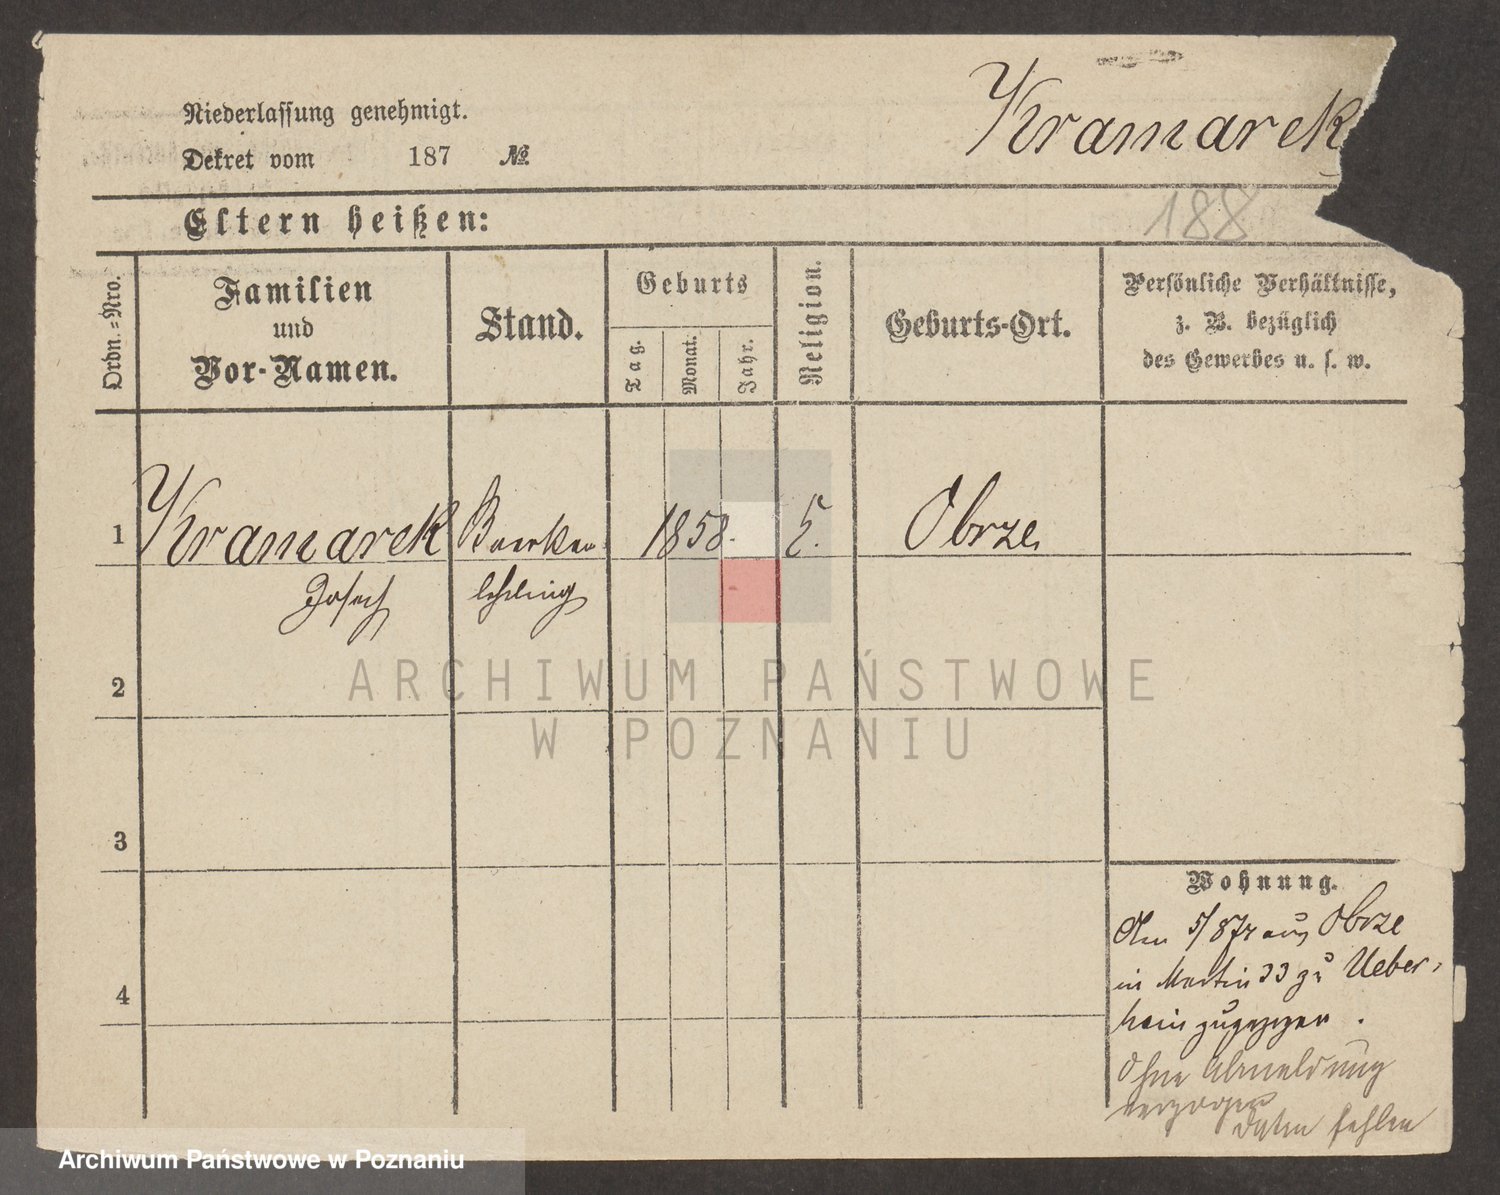 Kramarek
Niederlassung genehmigt.
Dekret vom 187 №
188
Eltern heißen:
Ordn.=Nro.
Familien
und
Vor-Namen.
Stand.
Geburts
Tag.
Monat.
Jahr.
Religion.
Geburts-Ort.
Persönliche Verhältnisse,
z. B. bezüglich
des Gewerbes u. s. w.
1 Kramarek 1858. Obrze
Josef lehrling
2
3
4
Wohnung.
Am 5/87 aus Obrze
in Martin 33 zu Ueber-
zugezogen.
Ohne Abmeldung
verzogen
Daten fehlen
ARCHIWUM PAŃSTWOWE
W POZNANIU
Archiwum Państwowe w Poznaniu